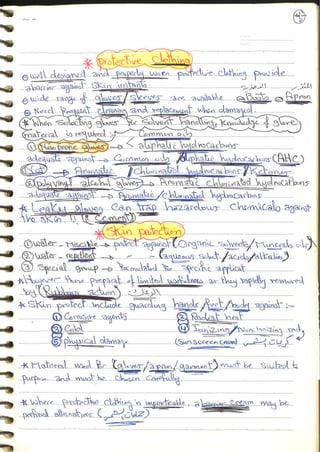 * protective clothing
well designed and properly worn protective clothing provide
a barrier against skin irritants
wide range of gloves / sleeves are available Apron
Need Frequent cleaning and replacement when damaged.
* When selecting gloves for Solvent handling, Knowledge of glove
material is required
Common oils
① Neoprene gloves
aliphatic hydrocarbons
adequate against → Common oils / aliphatic hydrocarbons (AHC)
Aromatic / chlorinated hydrocarbons / Ketones
② polyvinyl alcohol gloves → Aromatic, chlorinated hydrocarbons
adequate against → Aromatic / chlorinated hydrocarbons
* Leaky gloves Can trap hazardous chemicals against
the skin (Cement)
* skin protection
① water-miscible → protect against (organic solvents / Minerals oils)
② water-repellent → (aqueous / acids / alkalis)
③ Special group → formulated for specific applicat
* However these preparat of limited usefulness as they rapidly removed
by (Rubbing action)
* Skin protect include guarding hands / feet / body against :-
① Corrosive agents ② Radiant heat
③ Cold ④ Ionizing / Non Ionizing rad,
⑤ physical damage (Sunscreen cream)
* Material used for (glover / apron / garment) must be suited to
purpose and must be chosen carefully.
* Where protective clothing is impracticable, a barrier cream may be
preferred alternatives